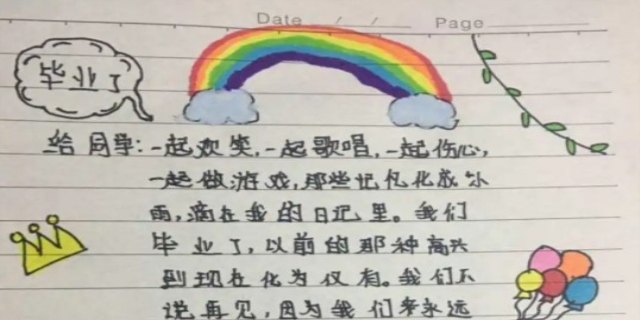 Date / / Page
毕业了
给同学:一起欢笑,一起歌唱,一起伤心,
一起做游戏,那些记忆化成小
雨,滴在我的日记里。我们
毕业了,以前的那种高兴
到现在化为仅有。我们不
说再见,因为我们考永远